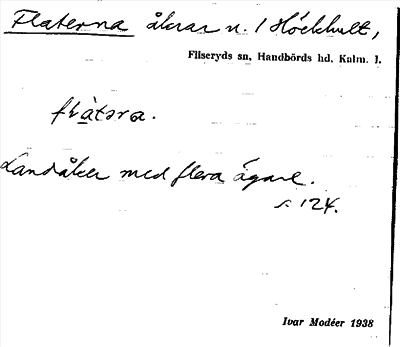 Flaterna åkrar n. 1 Höckhult,
Fliseryds sn, Handbörds hd, Kalm. l.
flàtəra.
Landåker med flera ägare.
s. 124.
Ivar Modéer 1938